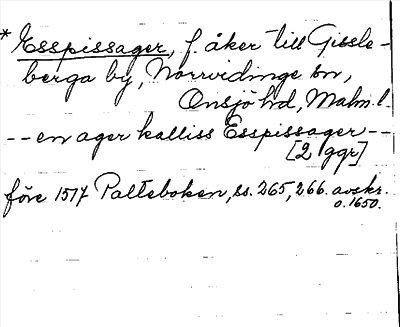 * Esspissager, f. åker till Gissle-
berga by, Norrvidinge sn,
Onsjö hd, Malm. l.
-- en ager kalliss Esspissager --
[2 ggr]
före 1517 Palteboken, ss. 265, 266. avskr.
o. 1650.